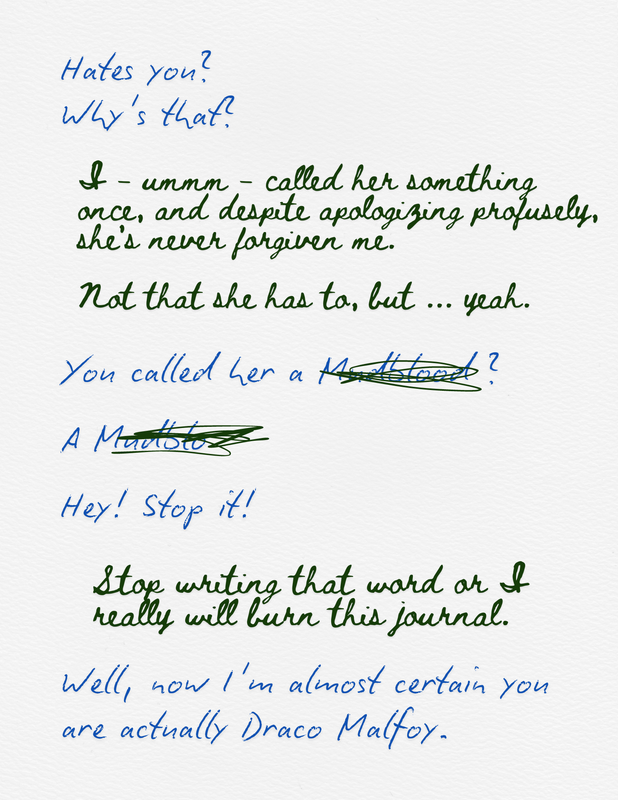 Hates you?
Why's that?
I – ummm – called her something
once, and despite apologizing profusely,
she's never forgiven me.
Not that she has to, but ... yeah.
You called her a Mudblood?
A Mudblo
Hey! Stop it!
Stop writing that word or I
really will burn this journal.
Well, now I'm almost certain you
are actually Draco Malfoy.